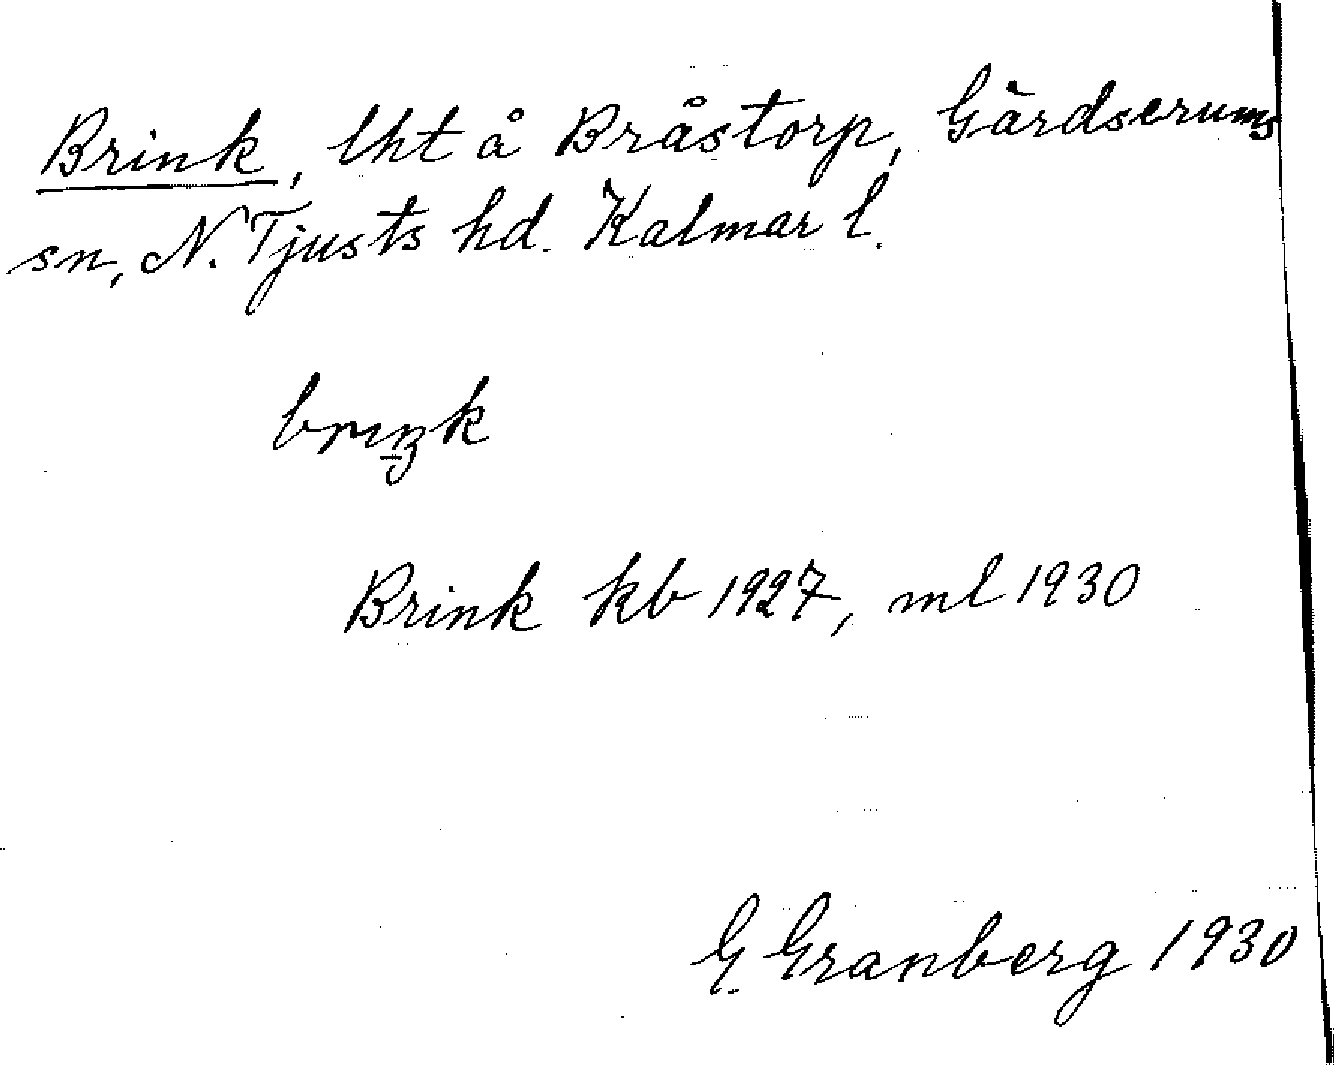 Brink, lht å Bråstorp, Gärdserums
sn, N. Tjusts hd. Kalmar l.
briŋk
Brink kb 1927, ml 1930
G. Granberg 1930